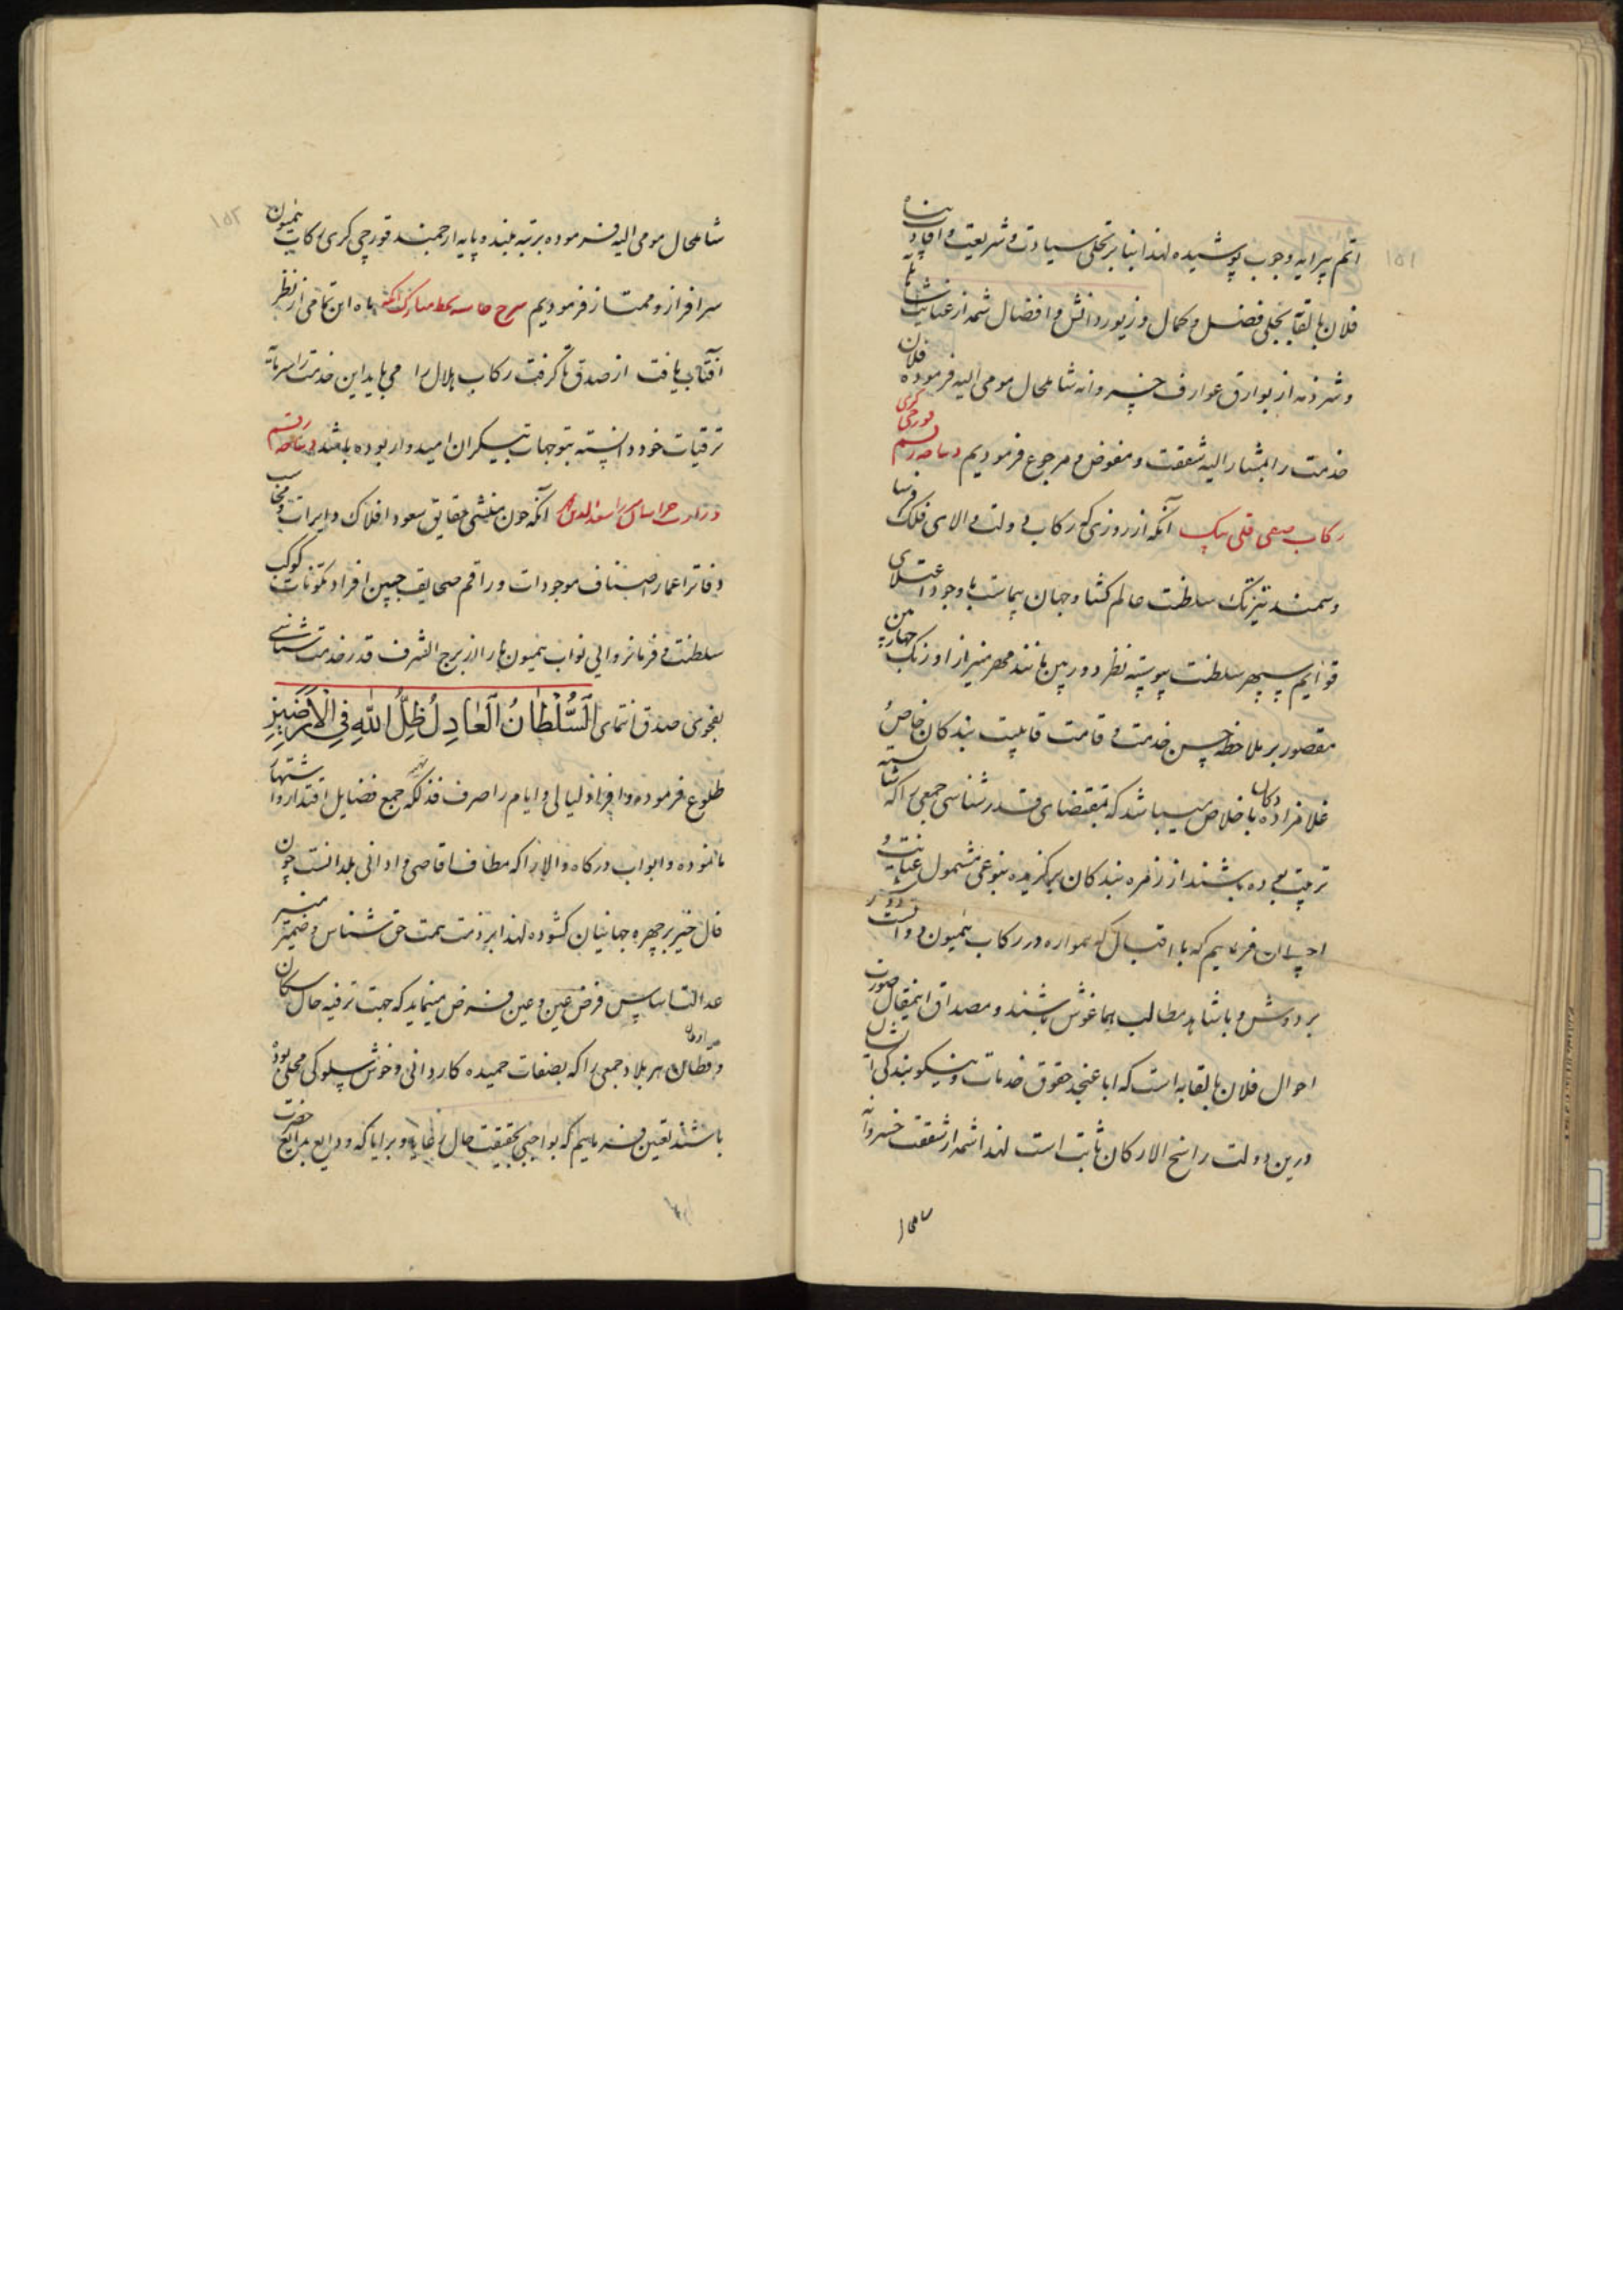 ۱۵۱
اتم پیرایه وجوب پوشیده لهذا بنابر تحلی سیادت و شریعت و افادت پناه
فلان بالقابه بحلی فضل و کمال و زیور دانش و افضال شمه از عنایت شاهانه
و شرذمه از بوارق عوارف خسروانه شامل حال مومی الیه فرموده فلان
خدمت را بمشار الیه شفقت و مفوض و مرجوع فرمودیم دیباچه رقم قورچی کری
رکاب صفی قلی بیک آنکه از روزی که رکاب دولت والای فلک فرسا
و سمند تیزتک سلطنت عالم کشا و جهان پیماست باوجود اعتلای
قوایم سپهر سلطنت پیوسته نظر دوربین مانند مهر منیر از اورنک چهارمین
مقصور بر ملاحظه حسن خدمت و قامت قابلیت بندکان خاص و
غلامزادکان با اخلاص میباشد که بمقتضای قدرشناسی جمعی را که شایسته
تربیت بوده باشند از زمره بندکان برکزیده بنوعی مشمول عنایت و
احسان فرمائیم که با اقبال که همواره در رکاب همیون دولت دوش
بر دوش و با شاهد مطالب هم‌اغوش باشند و مصداق اینمقال صورت
احوال فلان بالقابه است که ابا عنجد حقوق خدمات و نیکو بندکی ایشان
درین دولت راسخ الارکان ثابت است لهذا شمه از شفقت خسروانه
۱۵۲
شامل حال مومی الیه فرموده برتبه بلند و پایه ارجمند قورچی کری رکاب همیون
سرافراز و ممتاز فرمودیم شرح حاشیه بخط مبارک آنکه ماه این تمامی از نظر
آفتاب یافت از صدق تا کرفت رکاب هلال را می باید این خدمت را سرمایه
ترقیات خود دانسته بتوجهات بیکران امیدوار بوده باشد دیباچه رقم
وزارت خراسان آنکه چون منشی حقایق سعود افلاک و محاسب
دفاتر اعمار اصناف موجودات و راقم صحایف جبین افراد مکونات کوکب
سلطنت و فرمانروایی نواب همیون ما را از برج الشرف قدر خدمت شناسی
بفحوی صدق انتمای السُّلْطَانُ الْعَادِلُ ظِلُّ اللهِ فِي الْاَرَضِينَ
طلوع فرموده و افراد لیالی و ایام را صرف فذلکه جمع فضایل اقتدار و اشتهار
ما نموده و ابواب درکاه والا را که مطاف اقاصی و ادانی بلد انست چون
فال خیر بر چهره جهانیان کشوده لهذا بر ذمت همت حق شناس و ضمیر منیر
عدالت اساس فرض عین و عین فرض مینماید که جهت ترفیه حال سکان
و قطان هر بلاد جمعی را که بصفات حمیده کاردانی و خوش سلوکی محلی بوده
باشند تعیین فرمائیم که بواجبی بحقیقت حال رعایا و برایا که ودایع بدایع حضرت